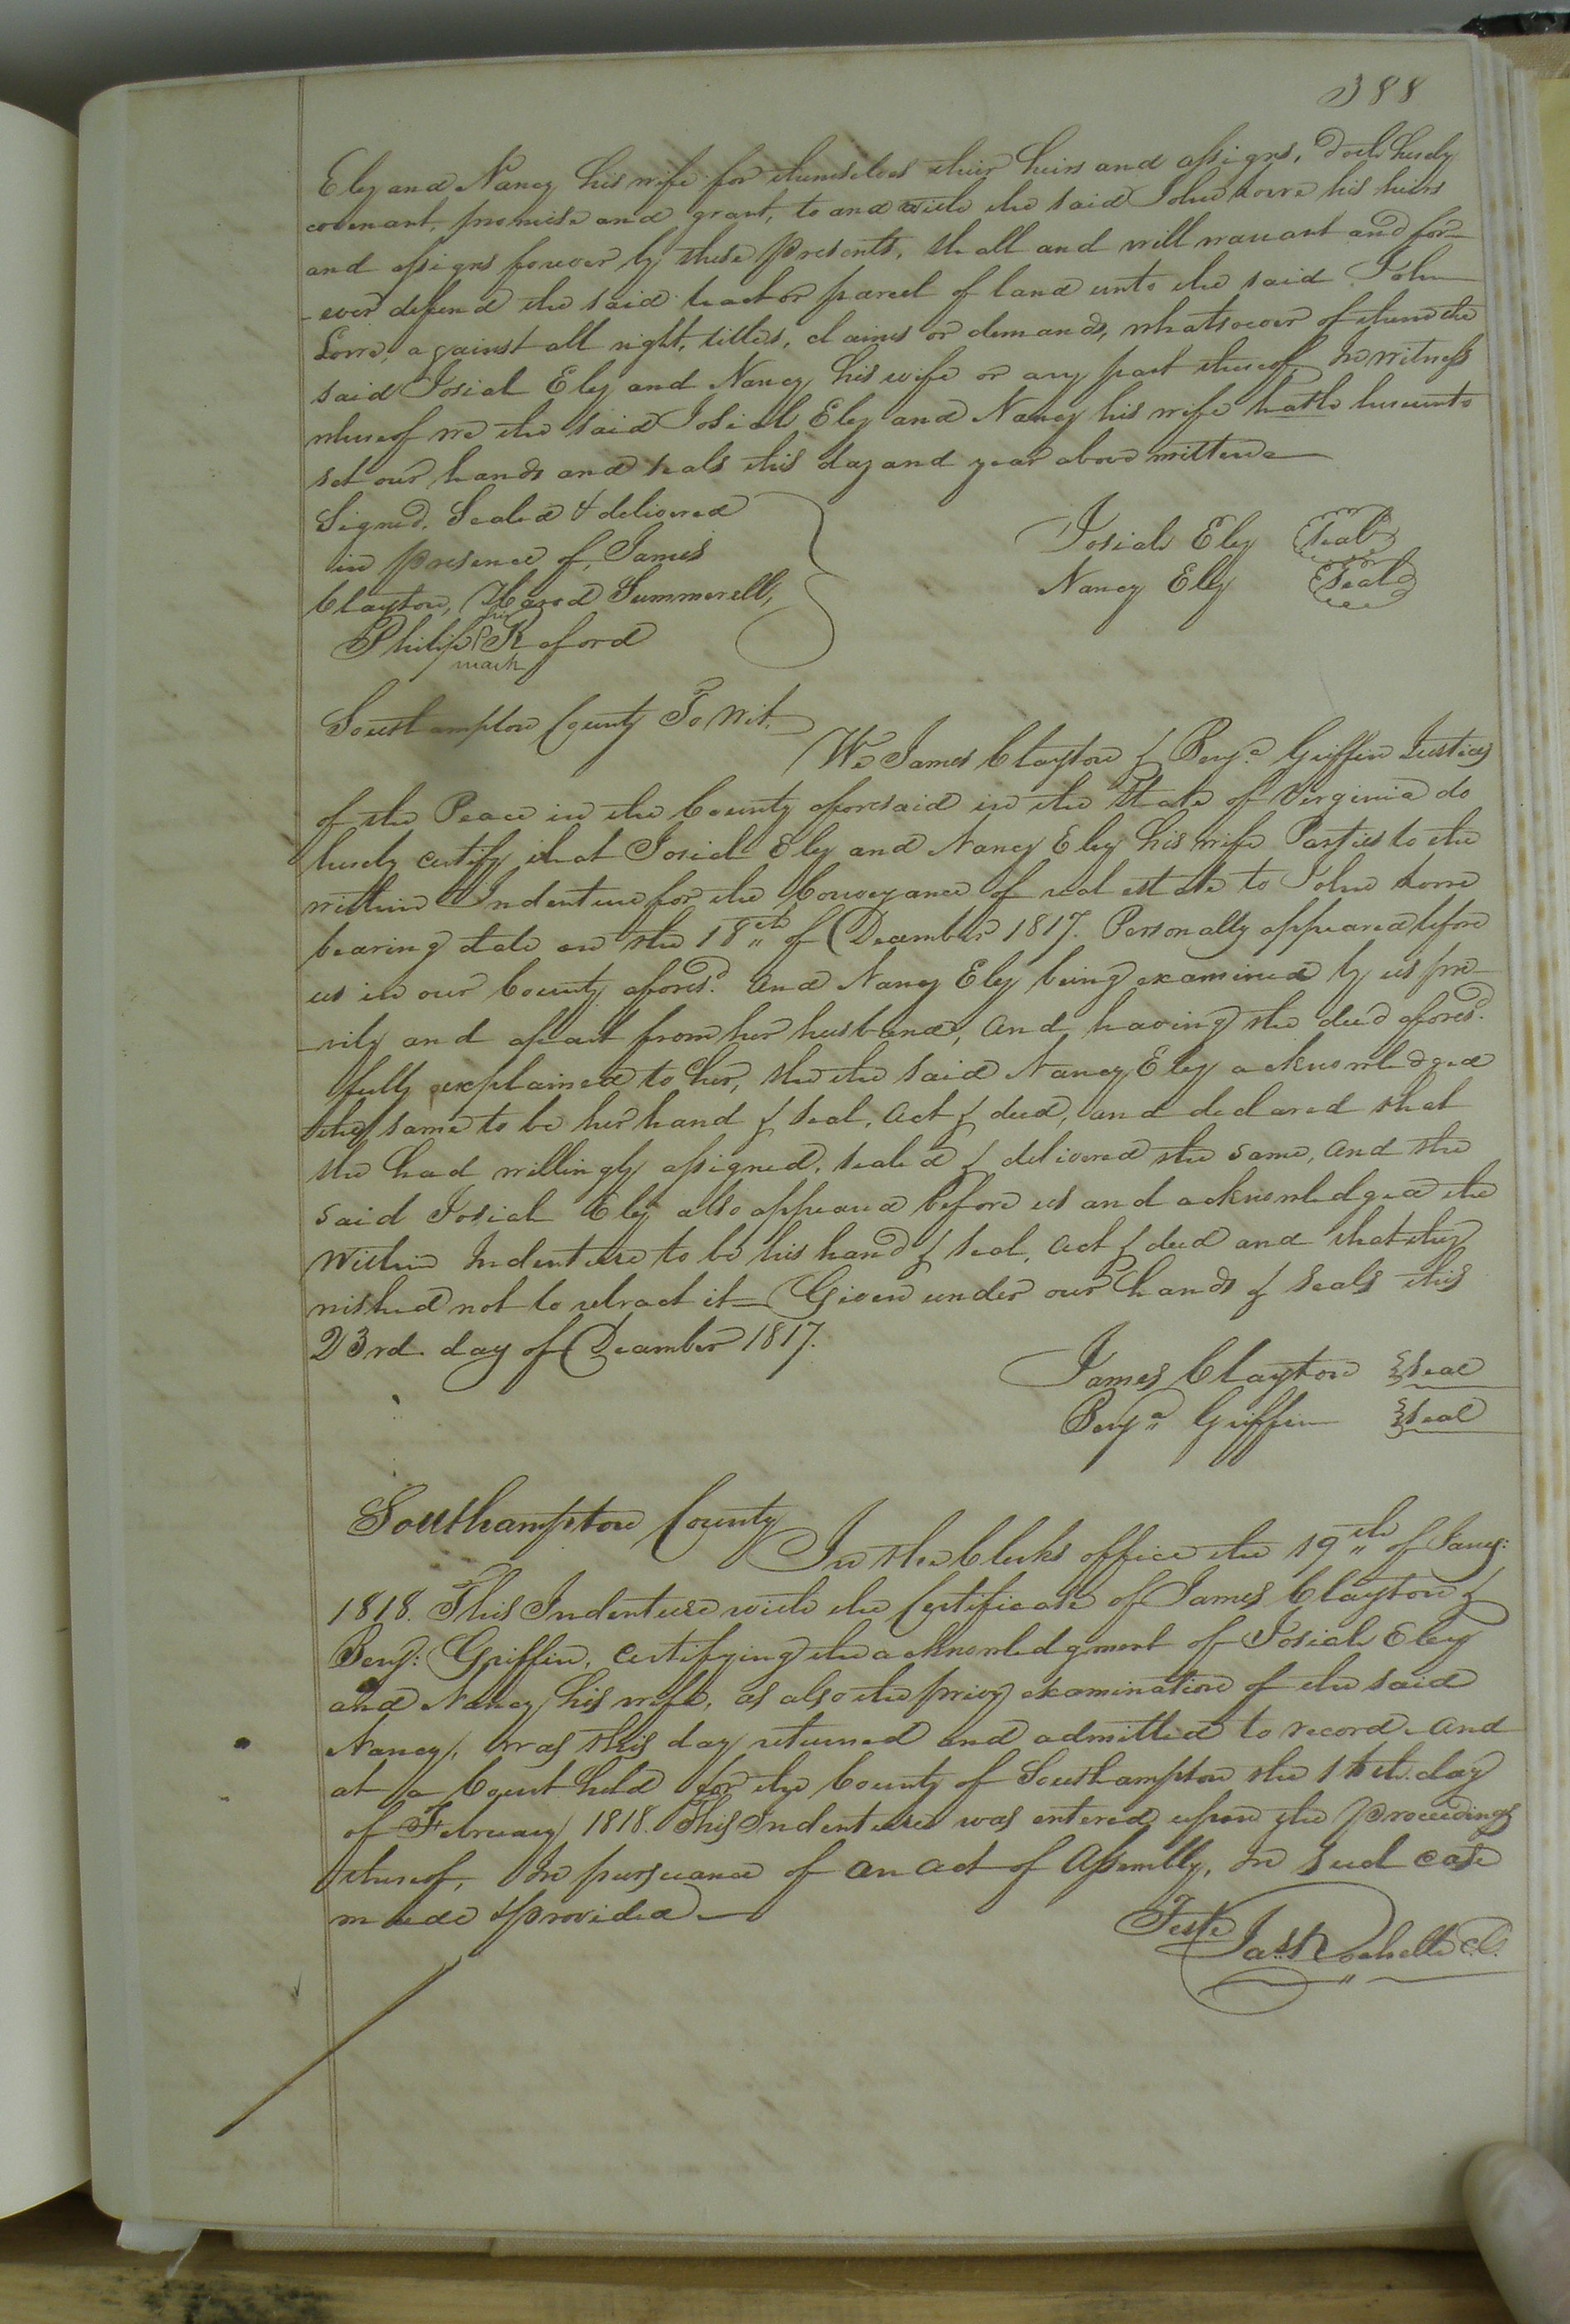 388
Eley and Nancy his wife for themselves their heirs and assigns, doth hereby
covenant, promise and grant, to and with the said John Lowe his heirs
and assigns forever by these presents, shall and will warrant and for-
-ever defend the said tract or parcel of land unto the said John
Lowe, against all right, titles, claims or demands, whatsoever of them the
said Josiah Eley and Nancy his wife or any part thereof, In witness
whereof we the said Josiah Eley and Nancy his wife hath hereunto
set our hands and seals this day and year above written
Signed, Sealed & delivered
in presence of, James
Clayton, Summerell,
his
Philip R aford
mark
Josiah Eley Seal
Nancy Eley Seal
Southampton County To Wit,
We James Clayton & Benja Griffin Justices
of the Peace in the County aforesaid in the State of Virginia do
hereby certify that Josiah Eley and Nancy Eley his wife Parties to the
within Indenture for the Conveyance of real estate to John Lowe
bearing date on the 18th of December 1817. Personally appeared before
us in our County aforesd. and Nancy Eley being examined by us pri-
-vily and apart from her husband, and having the deed aforesd.
fully explained to her, she the said Nancy Eley acknowledged
the same to be her hand & seal, act & deed, and declared that
she had willingly assigned, sealed & delivered the same, and the
said Josiah Eley also appeared before us and acknowledged the
within Indenture to be his hand & seal, act & deed and that they
wished not to retract it — Given under our hands & seals this
23rd day of December 1817.
James Clayton Seal
Benja Griffin Seal
Southampton County
In the Clerks office the 19th of Jany:
1818. This Indenture with the Certificate of James Clayton &
Benj: Griffin, certifying the acknowledgment of Josiah Eley
and Nancy his wife, as also the privy examination of the said
Nancy, was this day returned and admitted to record. And
at a Court held for the County of Southampton the day
of February 1818. This Indenture was entered upon the proceedings
thereof, In pursuance of an act of Assembly, in such case
made & provided —
Teste
Jas Rochelle C.C.